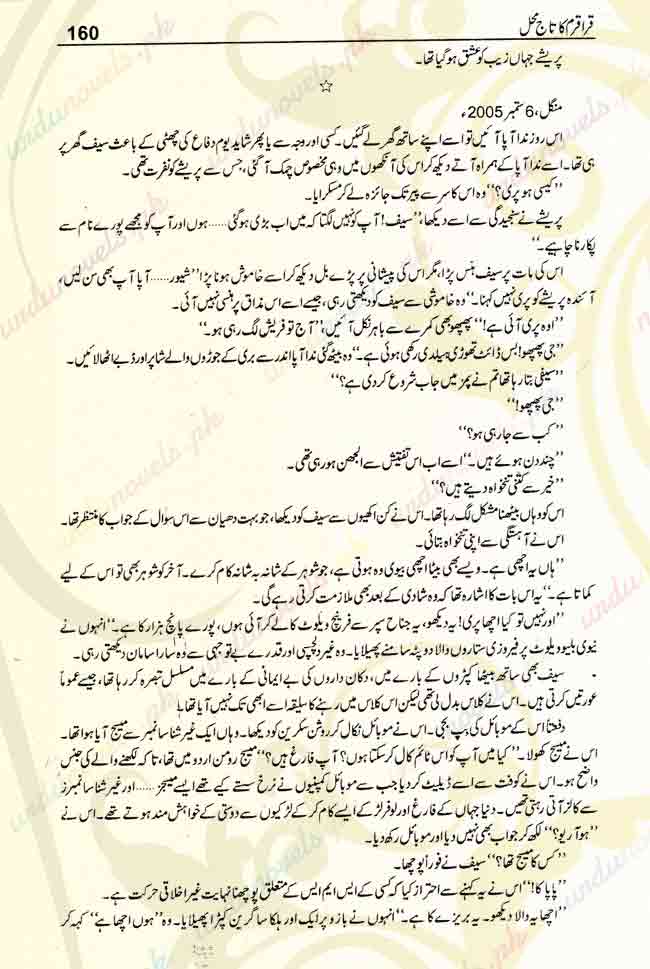 160
قراقرم کا تاج محل
پریشے جہاں زیب کو عشق ہو گیا تھا۔
☆
منگل، 6 ستمبر 2005ء
اس روز ندا آپا آئیں تو اسے اپنے ساتھ گھر لے گئیں۔ کسی اور وجہ سے یا پھر شاید یوم دفاع کی چھٹی کے باعث سیف گھر پر
ہی تھا۔ اسے ندا آپا کے ہمراہ آتے دیکھ کر اس کی آنکھوں میں وہی مخصوص چمک آ گئی، جس سے پریشے کو نفرت تھی۔
’’کیسی ہو پری؟‘‘ وہ اس کا سر سے پیر تک جائزہ لے کر مسکرایا۔
پریشے نے سنجیدگی سے اسے دیکھا، ’’سیف! آپ کو نہیں لگتا کہ میں اب بڑی ہو گئی ...... ہوں اور آپ کو مجھے پورے نام سے
پکارنا چاہیے۔‘‘
اس کی بات پر سیف ہنس پڑا، مگر اس کی پیشانی پر پڑے بل دیکھ کر اسے خاموش ہونا پڑا ’’شیور ...... آپا آپ بھی سن لیں،
آئندہ پریشے کو پری نہیں کہنا۔‘‘ وہ خاموشی سے سیف کو دیکھتی رہی، جیسے اسے اس مذاق پر ہنسی نہیں آئی۔
’’اوہ پری آئی ہے!‘‘ پھپھو بھی کمرے سے باہر نکل آئیں، ’’آج تو فریش لگ رہی ہو۔‘‘
’’جی پھپھو! بس ڈائٹ تھوڑی ہیلدی رکھی ہوئی ہے۔‘‘ وہ بیٹھ گئی ندا آپا اندر سے بری کے جوڑوں والے شاپر اور ڈبے اٹھا لائیں۔
’’سیفی بتا رہا تھا تم نے پمز میں جاب شروع کر دی ہے؟‘‘
’’جی پھپھو!‘‘
’’کب سے جا رہی ہو؟‘‘
’’چند دن ہوئے ہیں۔‘‘ اسے اب اس تفتیش سے الجھن ہو رہی تھی۔
’’خیر سے کتنی تنخواہ دیتے ہیں؟‘‘
اس کو وہاں بیٹھنا مشکل لگ رہا تھا۔ اس نے کن اکھیوں سے سیف کو دیکھا، جو بہت دھیان سے اس سوال کے جواب کا منتظر تھا۔
اس نے آہستگی سے اپنی تنخواہ بتائی۔
’’ہاں یہ اچھی ہے۔ ویسے بھی بیٹا اچھی بیوی وہ ہوتی ہے، جو شوہر کے شانہ بہ شانہ کام کرے۔ آخر کو شوہر بھی تو اس کے لیے
کماتا ہے۔‘‘ یہ اس بات کا اشارہ تھا کہ وہ شادی کے بعد بھی ملازمت کرتی رہے گی۔
’’اور نہیں تو کیا اچھا پری! یہ دیکھو، یہ جناح سپر سے فرینچ ویلوٹ کا لے کر آئی ہوں، پورے پانچ ہزار کا ہے۔‘‘ انہوں نے
نیوی بلیو ویلوٹ پر فیروزی ستاروں والا دوپٹہ سامنے پھیلایا۔ وہ غیر دلچسپی اور قدرے بے توجہی سے وہ سارا سامان دیکھتی رہی۔
سیف بھی ساتھ بیٹھا کپڑوں کے بارے میں، دکان داروں کی بے ایمانی کے بارے میں مسلسل تبصرہ کر رہا تھا، جیسے عموماً
عورتیں کرتی ہیں۔ اس نے کلاس بدل لی تھی لیکن اس کلاس میں رہنے کا سلیقہ اسے ابھی تک نہیں آیا تھا۔
دفعتاً اس کے موبائل کی بپ بجی۔ اس نے موبائل نکال کر روشن سکرین کو دیکھا۔ وہاں ایک غیر شناسا نمبر سے میسج آیا ہوا تھا۔
اس نے میسج کھولا۔ ’’کیا میں آپ کو اس ٹائم کال کر سکتا ہوں؟ آپ فارغ ہیں؟‘‘ میسج رومن اردو میں تھا، تاکہ لکھنے والے کی جنس
واضح ہو۔ اس نے کوفت سے اسے ڈیلیٹ کر دیا جب سے موبائل کمپنیوں نے نرخ سستے کیے تھے ایسے میسجز ...... اور غیر شناسا نمبرز
سے کالز آتی رہتی تھیں۔ دنیا جہاں کے فارغ اور لوفر لڑکے ایسے کام کر کے لڑکیوں سے دوستی کے خواہش مند ہوتے تھے۔ اس نے
’’ہو آر یو؟‘‘ لکھ کر جواب بھی نہیں دیا اور موبائل رکھ دیا۔
’’کس کا میسج تھا؟‘‘ سیف نے فوراً پوچھا۔
’’پاپا کا!‘‘ اس نے یہ کہنے سے احتراز کیا کہ کسی کے ایس ایم ایس کے متعلق پوچھنا نہایت غیر اخلاقی حرکت ہے۔
’’اچھا یہ والا دیکھو۔ یہ بریزے کا ہے۔‘‘ انہوں نے بازو پر لیک اور ہلکا سا گرین کپڑا پھیلایا۔ وہ ’’ہوں اچھا ہے‘‘ کہہ کر
urdunovels.pk